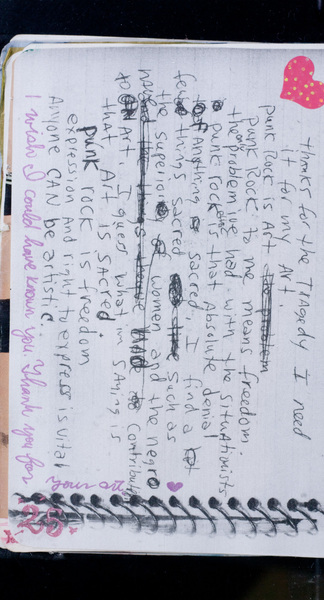 thanks for the TRagedy I need
it for my ART.
punk Rock is ART
punk Rock to me means freedom.
the only problem I've had with the situationists
punk rock ethic is that Absolute denial
of Anything sacred. I find a
few things sacred such as
the superiority of women and the negro
contribution
to ART. I guess what im saying is
that ART IS SACRed.
punk Rock is freedom
expression and right to express is vital
Anyone CAN be artistic
I wish I could have known you. Thank you for